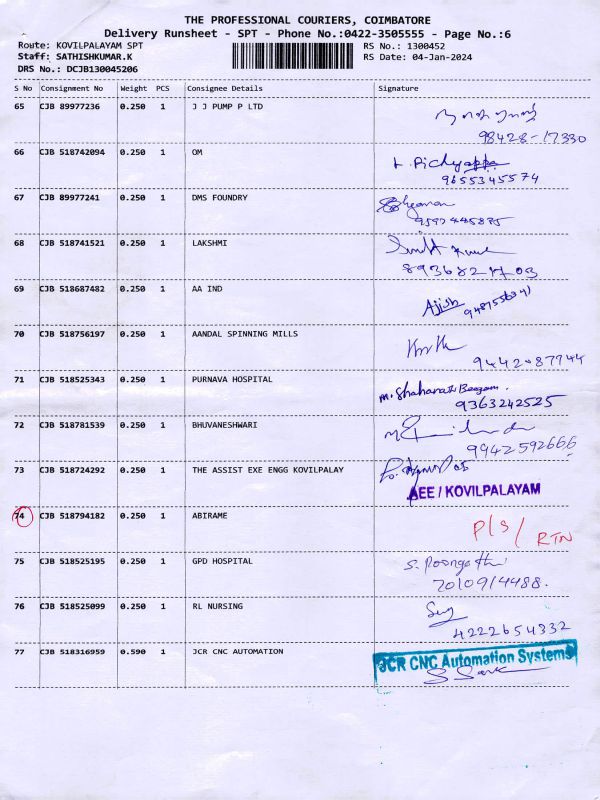 THE PROFESSIONAL COURIERS, COIMBATORE
Delivery Runsheet - SPT - Phone No.:0422-3505555 - Page No.:6
Route: KOVILPALAYAM SPT RS No.: 1300452
Staff: SATHISHKUMAR.K RS Date: 04-Jan-2024
DRS No.: DCJB130045206
S No Consignment No Weight PCS Consignee Details Signature
65 CJB 89977236 0.250 1 J J PUMP P LTD
98428-17330
66 CJB 518742094 0.250 1 OM L. Pichyappa
9655345574
67 CJB 89977241 0.250 1 DMS FOUNDRY
68 CJB 518741521 0.250 1 LAKSHMI
69 CJB 518687482 0.250 1 AA IND Ajish
70 CJB 518756197 0.250 1 AANDAL SPINNING MILLS
71 CJB 518525343 0.250 1 PURNAVA HOSPITAL
9363242525
72 CJB 518781539 0.250 1 BHUVANESHWARI
9942592666
73 CJB 518724292 0.250 1 THE ASSIST EXE ENGG KOVILPALAY
AEE / KOVILPALAYAM
74 CJB 518794182 0.250 1 ABIRAME P/S/
RTN
75 CJB 518525195 0.250 1 GPD HOSPITAL
7010914488.
76 CJB 518525099 0.250 1 RL NURSING
4222654332
77 CJB 518316959 0.590 1 JCR CNC AUTOMATION JCR CNC Automation Systems